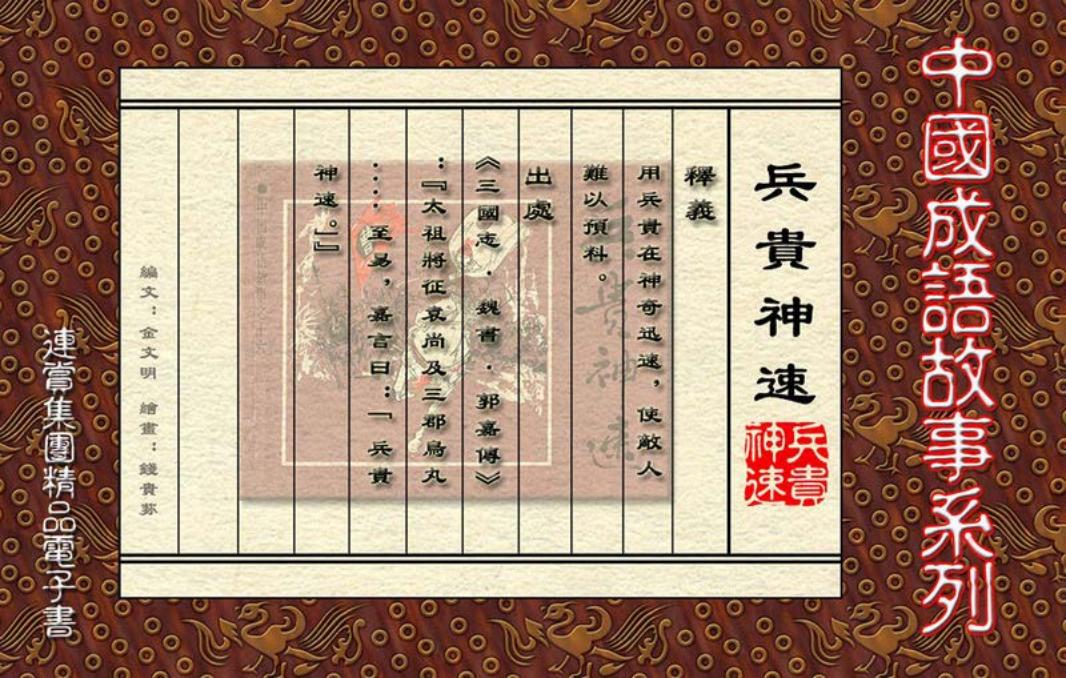 中國成語故事系列
兵貴神速
兵貴
神速
釋義
用兵貴在神奇迅速，使敵人
難以預料。
出處
《三國志．魏書．郭嘉傳》
：『太祖將征袁尚及三郡烏丸
．．．．至易，嘉言曰：「兵貴
神速。」』
兵貴神速
編文：金文明 繪畫：錢貴蓀
連賞集團精品電子書